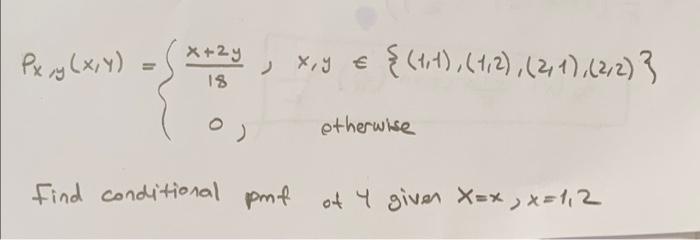 P_{X,Y}(x,y) = { (x+2y)/18 , x,y ∈ {(1,1),(1,2),(2,1),(2,2)}
0, otherwise
Find conditional pmf of Y given X=x, x=1,2